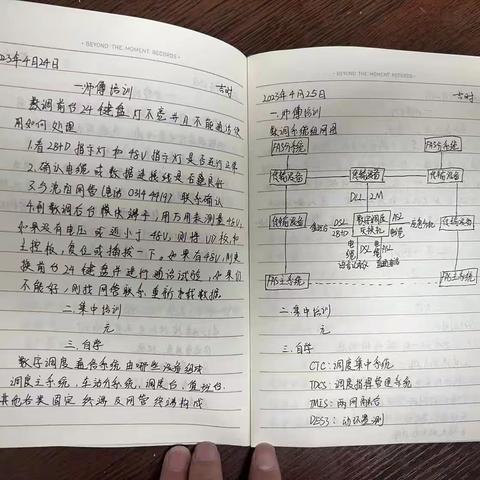 · BEYOND THE MOMENT RECORDS ·
2023年4月24日
一师傅培训 1时
数调前台24键盘灯不亮并且不能通话使
用如何处理
1.看2B+D指示灯和48V指示灯是否运行正常
2.确认电缆或数据连接线是否良好
3.与
网管(电话03144919)联系确认
4.到数调后台模块端子,用万用表测量48V,
如果没有电压或远小于48V,则将U口板和
主控板,复位或插拔一下。如果有48V,则更
换前台24键盘并进行通话试验,如果仍
不能好,则找网管联系重新
数据
二集中培训
无
三.自学
数字调度通信系统由哪些设备组成
调度主系统,车站分系统,调度台,值班台,
其他各类固定终端及网管终端构成
· BEYOND THE MOMENT RECORDS ·
2023年4月25日 1时
一.师傅培训
数调系统组网图
FAS系统 FAS系统
传输设备 传输设备 传输设备
DCL 2M
传输设备 DSL 2B+D 数字调度交换机 传输设备
电缆 DSL 电缆
FAS主系统 FAS主系统
二.集中培训
无
三.自学
CTC:调度集中系统
TDCS:调度指挥管理系统
TMIS:两网融合
DES3:动环监测